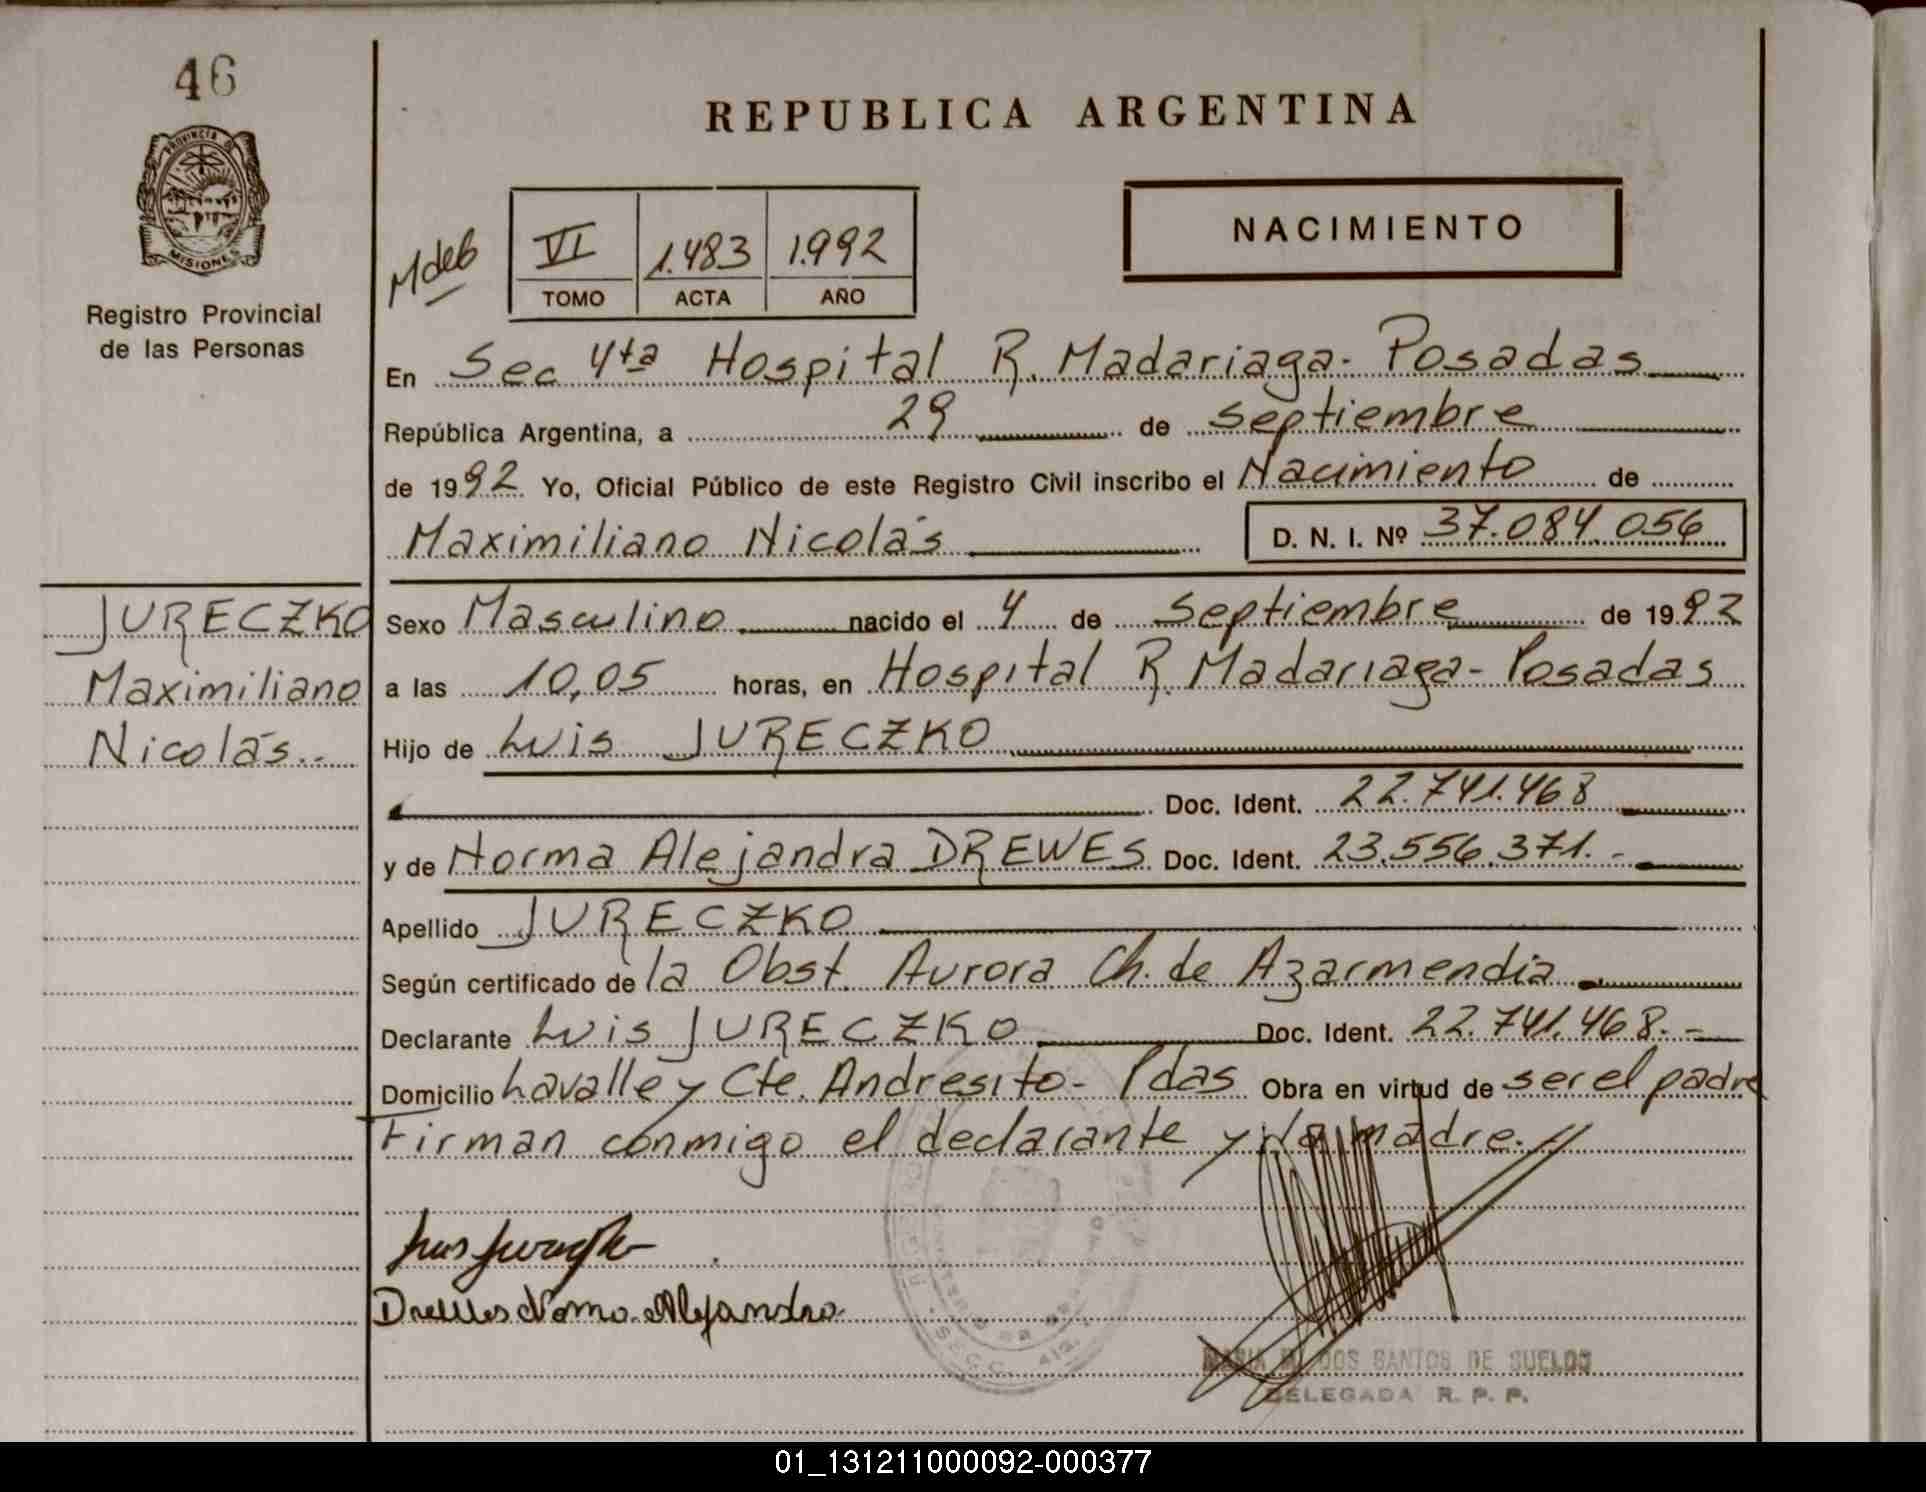 46
PROVINCIA DE
MISIONES
Registro Provincial
de las Personas
REPUBLICA ARGENTINA
NACIMIENTO
Mdeb
VI 1.483 1.992
TOMO ACTA AÑO
En Sec 4ta Hospital R. Madariaga - Posadas
República Argentina, a 29 de septiembre
de 1992 Yo, Oficial Público de este Registro Civil inscribo el Nacimiento de
Maximiliano Nicolás D. N. I. Nº 37.084.056
JURECZKO
Maximiliano
Nicolás..
Sexo Masculino nacido el 4 de septiembre de 1992
a las 10,05 horas, en Hospital R. Madariaga - Posadas
Hijo de Luis JURECZKO
Doc. Ident. 22.741.468
y de Norma Alejandra DREWES Doc. Ident. 23.556.371.-
Apellido JURECZKO
Según certificado de la Obst. Aurora Ch. de Azarmendia
Declarante Luis JURECZKO Doc. Ident. 22.741.468.-
Domicilio Lavalle y Cte. Andresito - Pdas Obra en virtud de ser el padre
Firman conmigo el declarante y la madre.
Drewes Norma Alejandra
DOS SANTOS DE SUELDO
DELEGADA R. P. P.
01_131211000092-000377